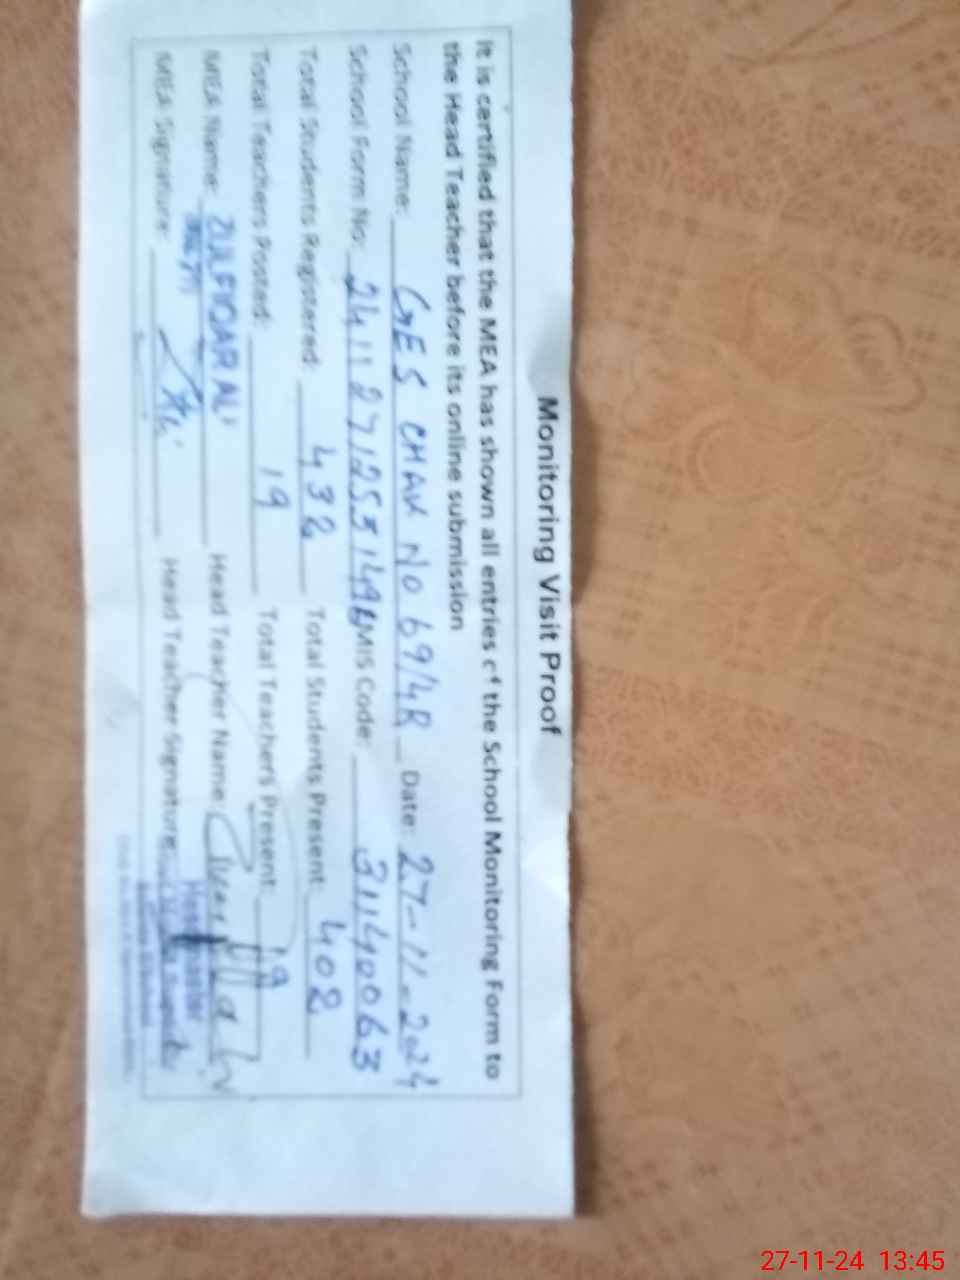 Monitoring Visit Proof
It is certified that the MEA has shown all entries of the School Monitoring Form to
the Head Teacher before its online submission
School Name: GES CHAK NO 69/4R Date: 27-11-2024
School Form No: EMIS Code: 31140063
Total Students Registered: 432 Total Students Present: 402
Total Teachers Posted: 19 Total Teachers Present: 19
MEA Name: ZULFIQAR ALI Head Teacher Name:
MEA Signature: Head Teacher Signature:
Headmaster
27-11-24 13:45